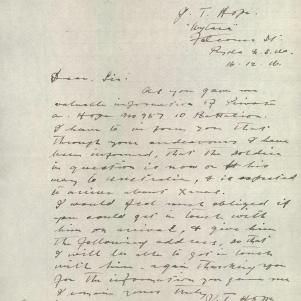 G. T. Hope.
"Wytaria"
Falconer St.
Ryde N.S.W.
16.12.16.
Dear Sir:
As you gave me
valuable information of Private
A. Hope No 967 10 Battalion.
I have to inform you that
through your endeavours I have
been informed, that the soldier
in question is now on his
way to Australia, & is expected
to arrive about Xmas.
I would feel much obliged if
you could get in touch with
him on arrival, & give him
the following address, so that
I will be able to get in touch
with him. Again thanking you
for the information you gave me
I remain yours truly
G. T. Hope